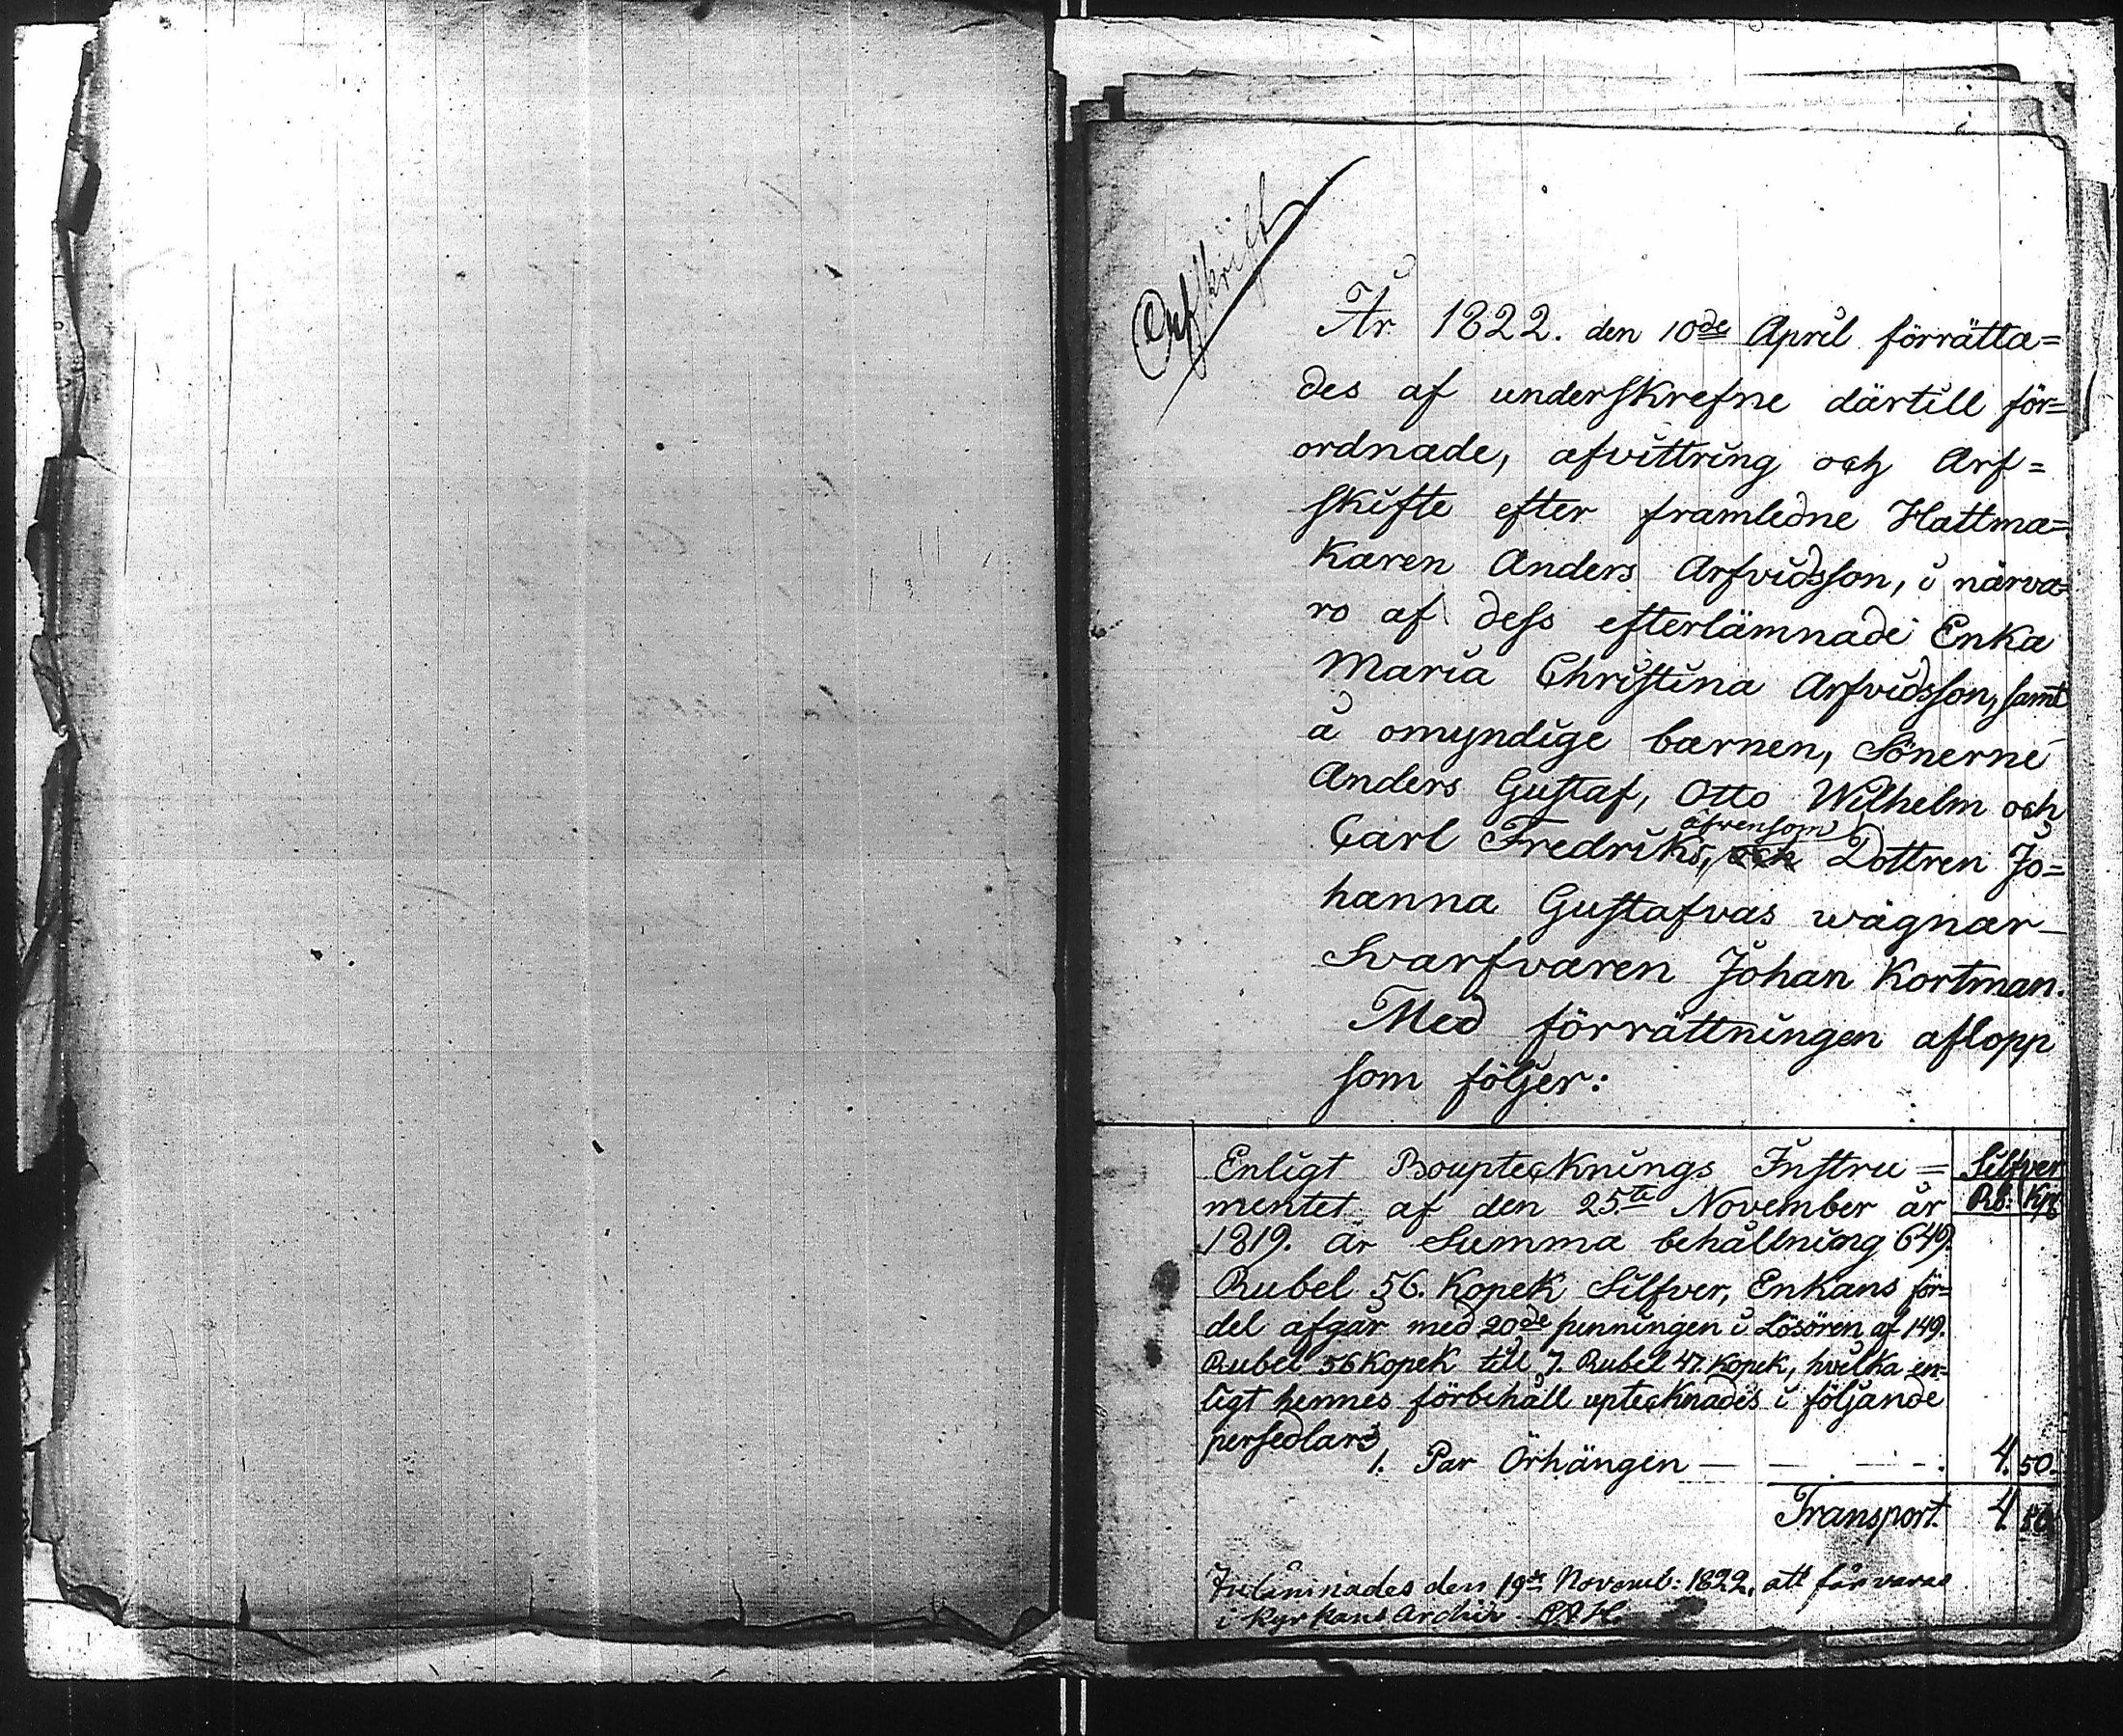 Afskrift
År 1822. den 10de April förrätta=
des af underskrefne därtill för=
ordnade, afvittring och Arf=
skifte efter framledne Hattma=
karen Anders Arfvidsson, i närva=
ro af dess efterlämnade Enka
Maria Christina Arfvidsson, samt
å omyndige barnen, Sönerne
Anders Gustaf, Otto Wilhelm och
äfvensom
Carl Fredriks, och Dottren Jo=
hanna Gustafvas wägnar
Svarfvaren Johan Kortman.
Med förrättningen aflopp
som följer:
Enligt Bouptecknings Instru= Silfver
mentet af den 25te November år Rb: Kpk
1819. är Summa behållning 649.
Rubel 56. Kopek Silfver, Enkans för=
del afgår med 20de penningen i Lösören af 149.
Rubel 56 Kopek till 7. Rubel 47. Kopek, hvilka en=
ligt hennes förbehåll uptecknades i följande
persedlar;
1. Par Örhängen — — — 4. 50.
Transport. 4 50
Inlämnades den 19de Novemb: 1822, att förvaras
i Kyrkans Archiv.